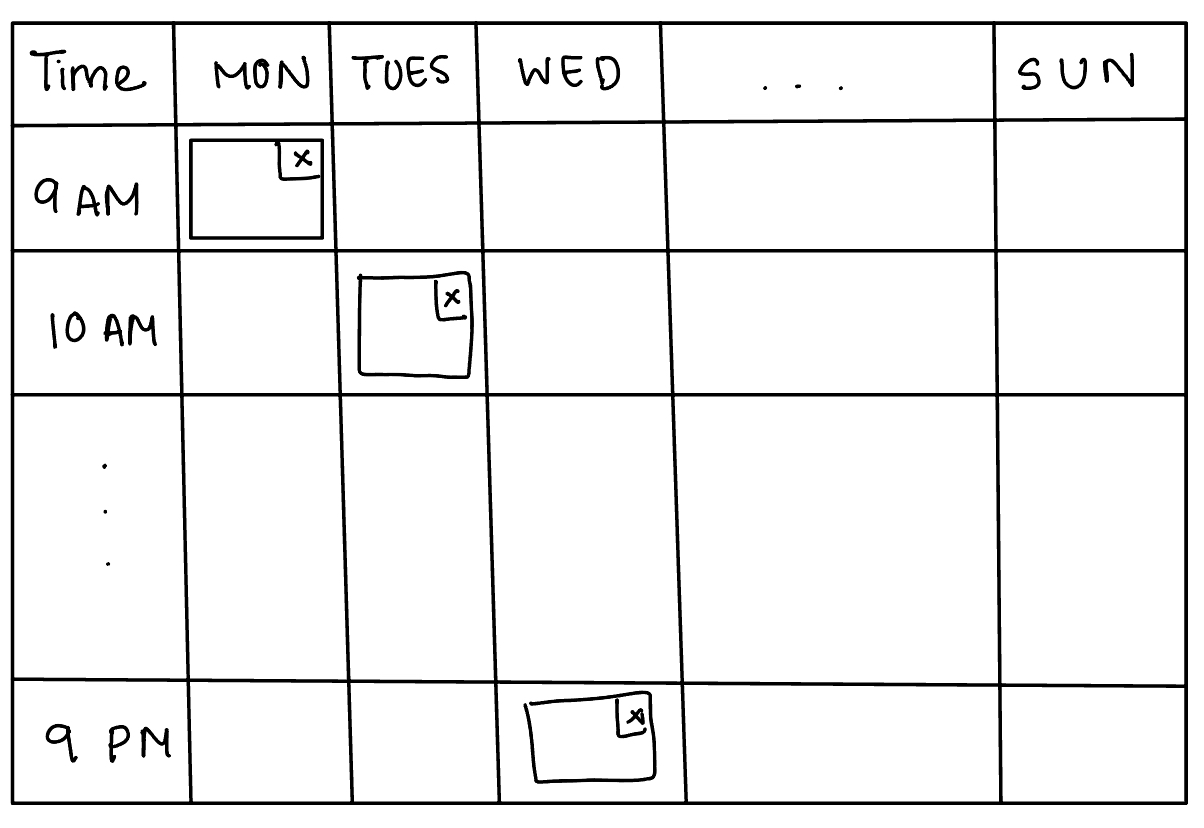 Time MON TUES WED ... SUN
9 AM x
10 AM x
.
.
.
9 PM x